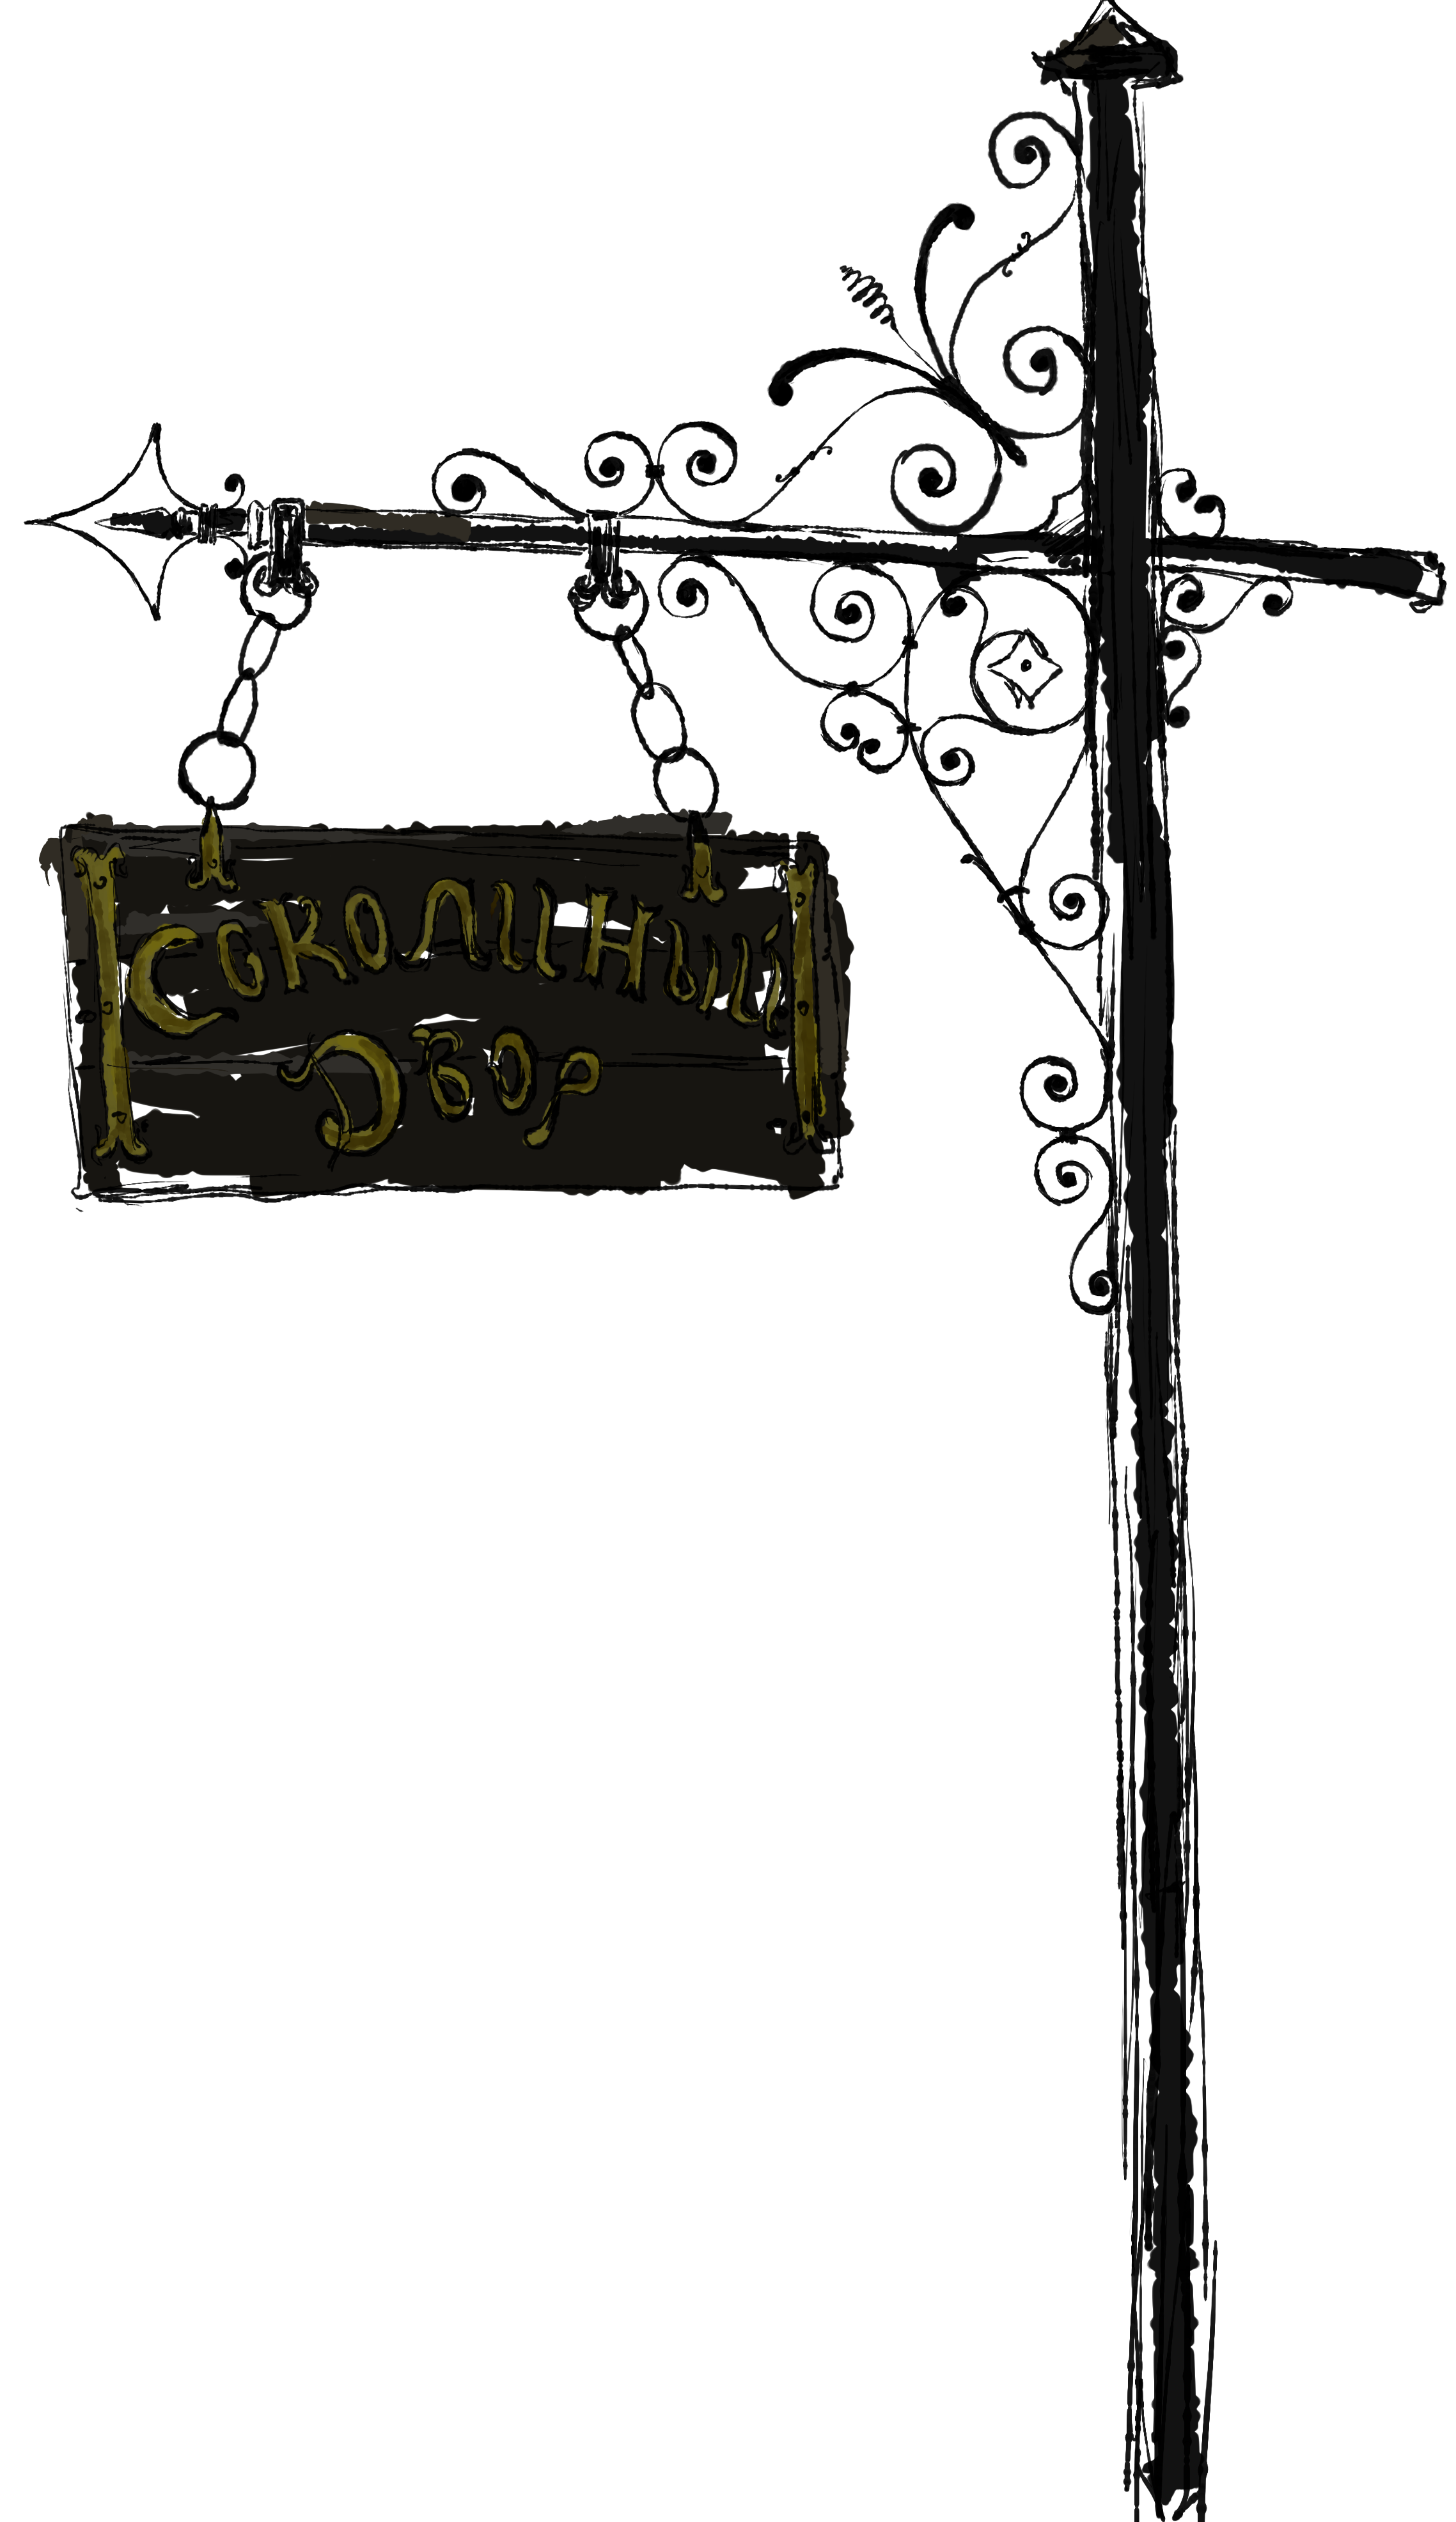 Соколиный
Двор